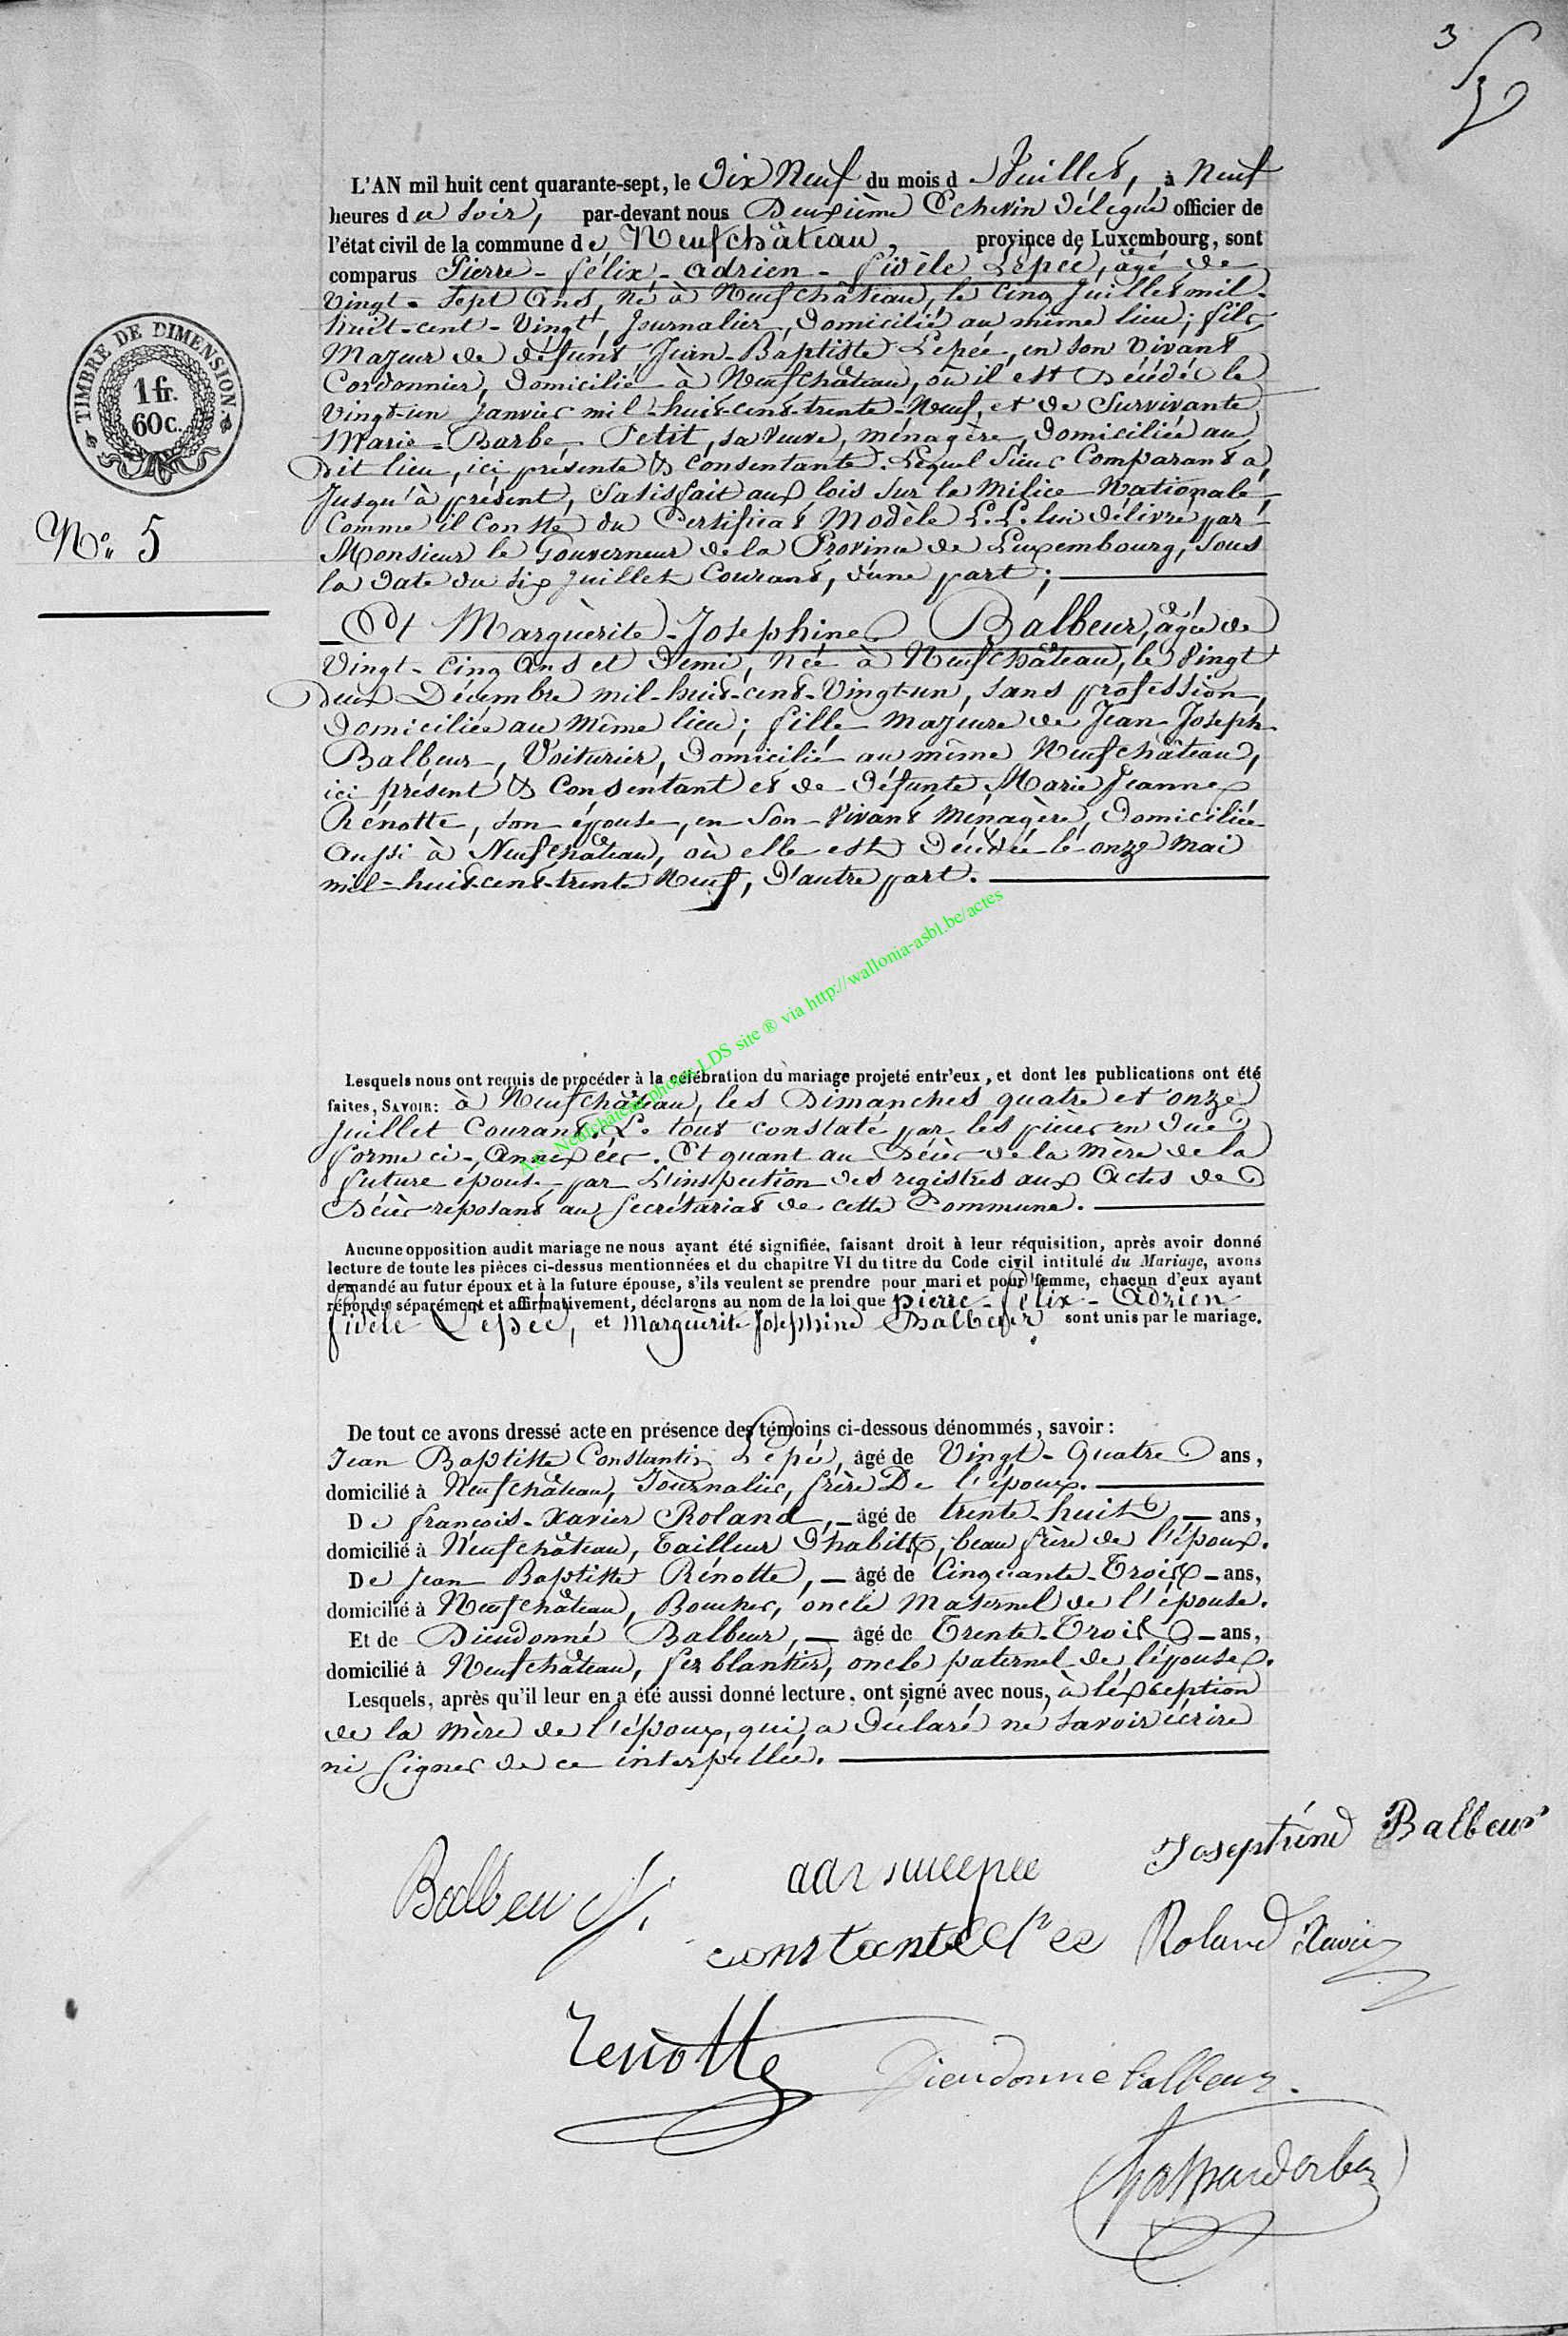 3
L'AN mil huit cent quarante-sept, le Dix Neuf du mois d Juillet, à Neuf
heures du soir, par-devant nous Deuxième Echevin Délégué officier de
l'état civil de la commune de Neufchâteau, province de Luxembourg, sont
comparus Pierre-félix-adrien-fidèle Lepée, âgé de
Vingt-Sept Ans, né à Neufchâteau, le Cinq Juillet mil-
huit-cent-Vingt, Journalier, Domicilié au même lieu; fils
Majeur de défunt Jean-Baptiste Lepée, en son vivant
Cordonnier, Domicilié à Neufchâteau, où il est Décédé le
Vingt-un Janvier mil-huit-cent-trente-Neuf, et de Survivante
Marie-Barbe Petit, sa Veuve, ménagère, Domiciliée au
Dit lieu, ici présente & consentante. Lequel Sieur Comparant a,
Jusqu'à présent, Satisfait aux lois Sur la Milice Nationale,
Comme il Conste du Certificat Modèle L.L. lui délivré par
Monsieur le Gouverneur de la Province de Luxembourg, Sous
la Date du six Juillet Courant, d'une part;
Et Marguèrite-Josephine Balbeur, âgée de
Vingt-Cinq Ans et Demi, Née à Neufchâteau, le Vingt
Deux Décembre mil-huit-cent-Vingt-un, Sans profession,
Domiciliée au Même lieu; fille Majeure de Jean Joseph
Balbeur, Voiturier, Domicilié au même Neufchâteau,
ici présent & Consentant et de Défunte Marie Jeanne
Rénotte, son épouse, en Son Vivant Ménagère, Domiciliée
Aussi à Neufchâteau, où elle est Décédée le onze Mai
mil-huit-cent-trente Neuf, D'autre part.
TIMBRE DE DIMENSION.
1 fr.
60c.
No. 5
A.C. Neufchâteau photos LDS site ® via http://wallonia-asbl.be/actes
Lesquels nous ont requis de procéder à la célébration du mariage projeté entr'eux, et dont les publications ont été
faites, SAVOIR: à Neufchâteau, les Dimanches quatre et onze
Juillet Courant. Le tout constaté par les pièces en Due
forme ci-Annexées. Et quant au Décès de la Mère de la
future épouse, par L'inspection des registres aux Actes de
Décès reposant au Secrétariat de cette Commune.
Aucune opposition audit mariage ne nous ayant été signifiée, faisant droit à leur réquisition, après avoir donné
lecture de toute les pièces ci-dessus mentionnées et du chapitre VI du titre du Code civil intitulé du Mariage, avons
demandé au futur époux et à la future épouse, s'ils veulent se prendre pour mari et pour femme, chacun d'eux ayant
répondu séparément et affirmativement, déclarons au nom de la loi que pierre-félix-Adrien
fidèle Lepée, et Marguèrite Josephine Balbeur sont unis par le mariage.
De tout ce avons dressé acte en présence des témoins ci-dessous dénommés, savoir:
Jean Baptiste Constantin Lepée, âgé de Vingt-Quatre ans,
domicilié à Neufchâteau, Journalier, frère De l'époux.
De françois-Xavier Roland, âgé de trente-huit ans,
domicilié à Neufchâteau, Tailleur D'habits, beau frère de l'époux.
De Jean Baptiste Rénotte, âgé de Cinquante-Trois ans,
domicilié à Neufchâteau, Boucher, oncle Maternel de l'épouse.
Et de Dieudonné Balbeur, âgé de Trente-Trois ans,
domicilié à Neufchâteau, ferblantier, oncle paternel de l'épouse.
Lesquels, après qu'il leur en a été aussi donné lecture, ont signé avec nous, à l'exception
de la Mère de l'époux, qui a Déclaré ne Savoir écrire
ni Signer de ce interpellée.
Josephine Balbeur
Balbeu
Roland Xavier
renotte
Dieudonné balbeur.